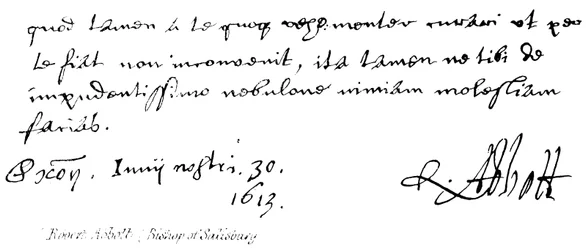 quod tamen à te quoq vehementer curari ut per
te fiat non inconvenit, ita tamen ne tibi de
impudentissimo nebulone nimiam molestiam
facias.
Oxon. Junij nostri. 30.
1613.
R. Abbott
Robert Abbott (Bishop of Salisbury